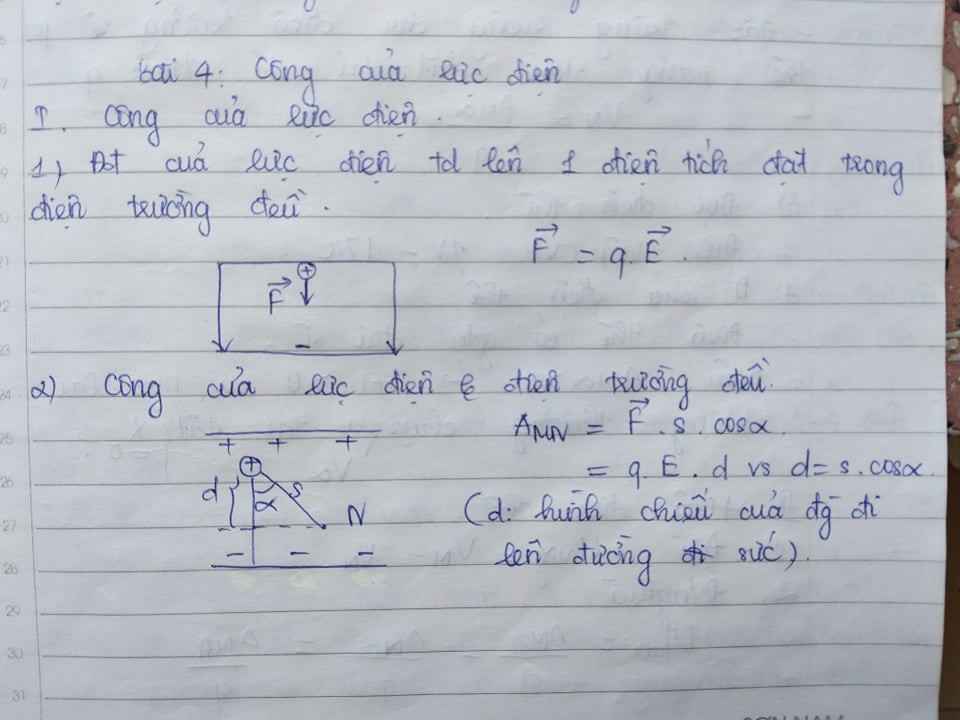 bài 4: Công của lực điện
I. Công của lực điện.
1) Đđ của lực điện td lên 1 điện tích đặt trong
điện trường đều.
F⃗ = q.E⃗.
+
F⃗
-
2) Công của lực điện điện trường đều.
+ + +
A_MN = F⃗.s.cosα.
= q.E.d vs d=s.cosα.
+
d s α N
(d: hình chiếu của đg đi
lên đường sức).
- - -